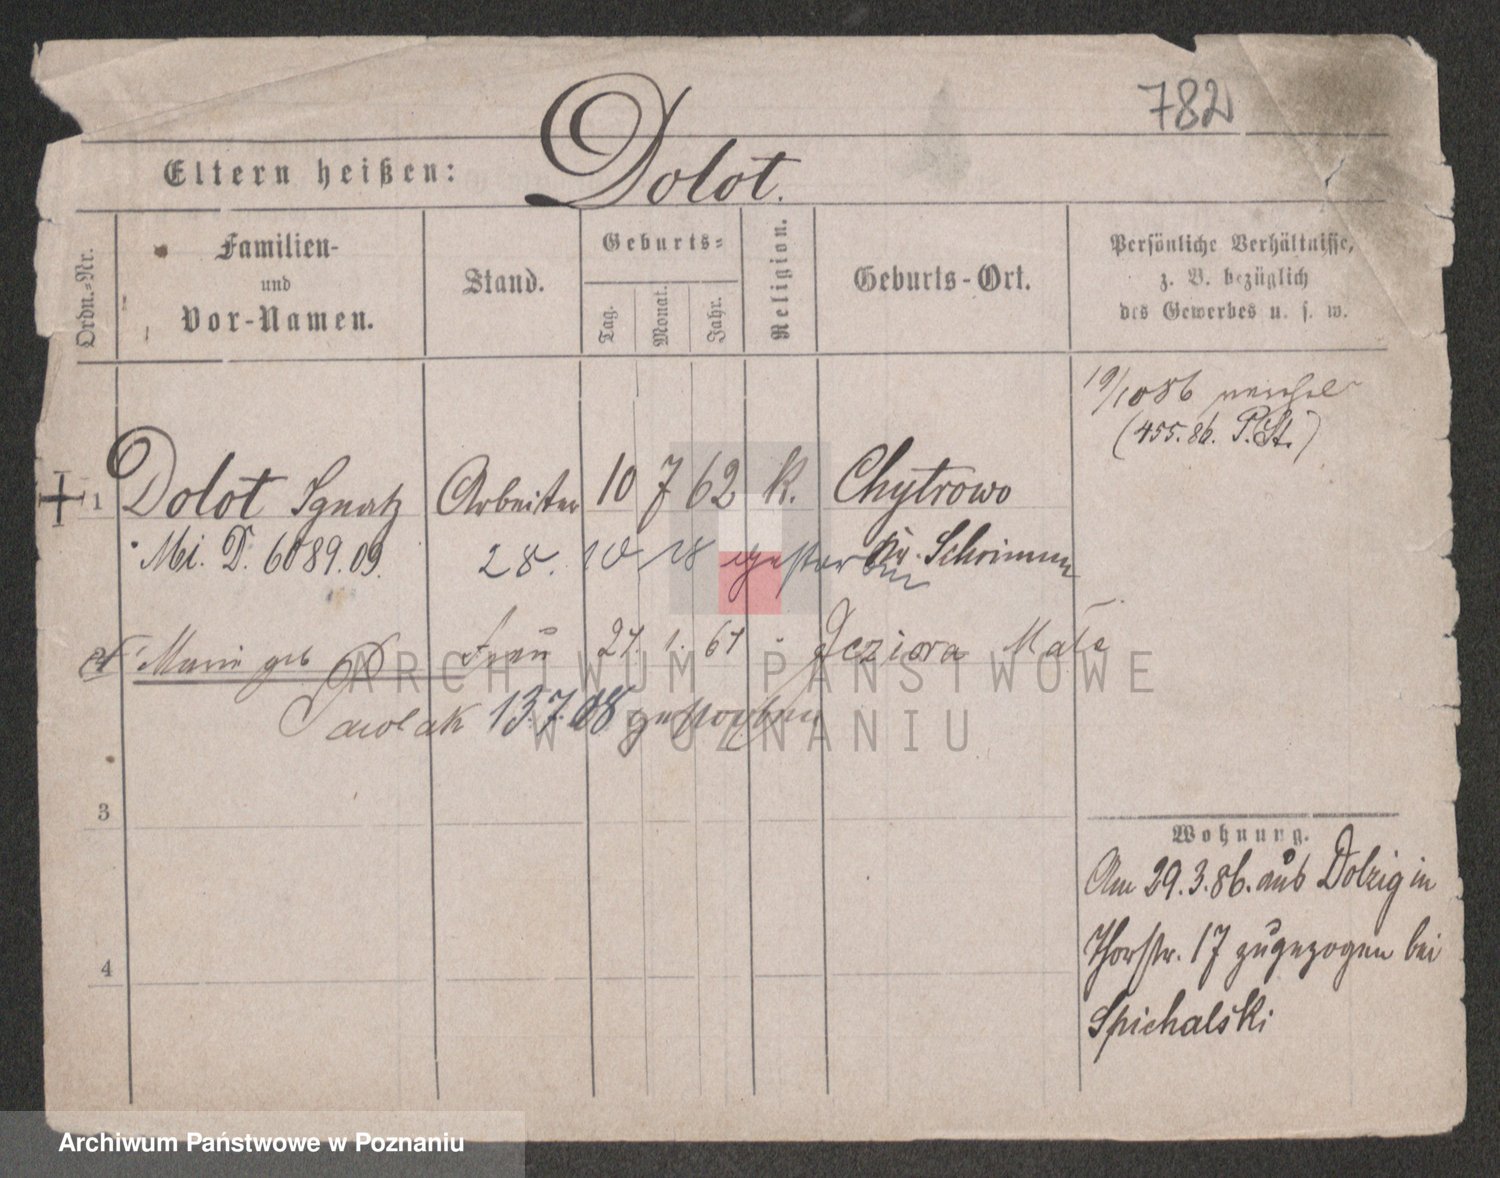 782
Eltern heißen: Dolot.
Ordn.-Nr.
Familien-
und
Vor-Namen.
Stand.
Geburts-
Tag.
Monat.
Jahr.
Religion.
Geburts-Ort.
Persönliche Verhältnisse,
z. B. bezüglich
des Gewerbes u. s. w.
19/10 86
(455.86. P. St.)
1 Dolot Ignatz Arbeiter 10 7 62 k. Chytrowo
Mi. D. 6089.09. Kr. Schrimm
28. 10 18 gestorben
Marie geb Frau 27. 1. 67 Jeziora Małe
Pawlak 13.7.08 gestorben
3
4
Wohnung.
Am 29.3.86. aus Dolzig in
Thorstr. 17 zugezogen bei
Spichalski
ARCHIWUM PAŃSTWOWE
W POZNANIU
Archiwum Państwowe w Poznaniu